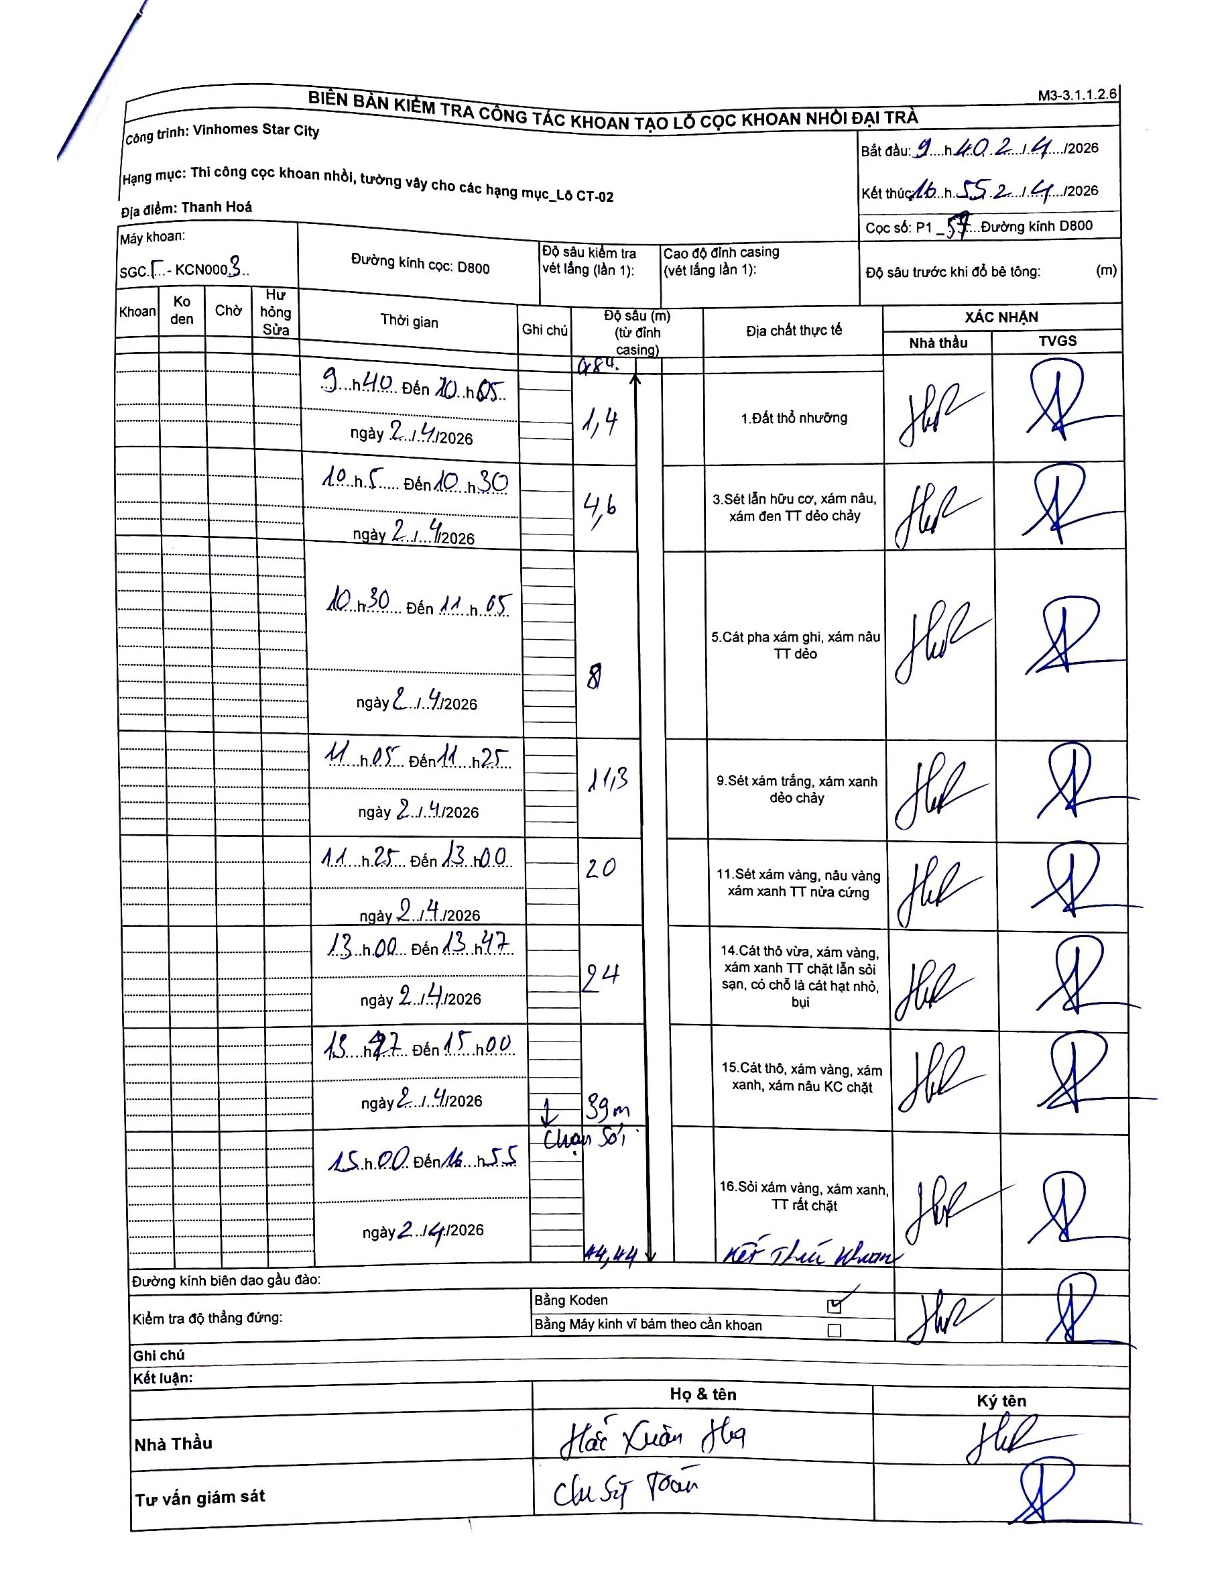 M3-3.1.1.2.6
BIÊN BẢN KIỂM TRA CÔNG TÁC KHOAN TẠO LỖ CỌC KHOAN NHỒI ĐẠI TRÀ
Công trình: Vinhomes Star City
Bắt đầu: 9...h 40. 2.../.4..../2026
Hạng mục: Thi công cọc khoan nhồi, tường vây cho các hạng mục_Lô CT-02
Kết thúc: 16...h. 55 2.../.4..../2026
Địa điểm: Thanh Hoá
Cọc số: P1_57...Đường kính D800
Máy khoan:
SGC.....- KCN0003..
Đường kính cọc: D800
Độ sâu kiểm tra vét lắng (lần 1):
Cao độ đỉnh casing (vét lắng lần 1):
Độ sâu trước khi đổ bê tông: (m)
Khoan Ko den Chờ Hư hỏng Sửa Thời gian Ghi chú Độ sâu (m) (từ đỉnh casing) Địa chất thực tế XÁC NHẬN
Nhà thầu TVGS
9...h40.. Đến 10...h.05..
ngày 2../.4/2026
1,4
1.Đất thổ nhưỡng
10..h.5..... Đến 10...h30
ngày 2../..4/2026
4,6
3.Sét lẫn hữu cơ, xám nâu,
xám đen TT dẻo chảy
10..h30.... Đến 11..h.05
ngày 2../..4/2026
8
5.Cát pha xám ghi, xám nâu
TT dẻo
11...h.05... Đến 11...h25..
ngày 2../..4/2026
11,3
9.Sét xám trắng, xám xanh
dẻo chảy
11...h.25... Đến 13..h00
ngày 2../.4./2026
20
11.Sét xám vàng, nâu vàng
xám xanh TT nửa cứng
13..h.00... Đến 13..h47
ngày 2../.4/2026
24
14.Cát thô vừa, xám vàng,
xám xanh TT chặt lẫn sỏi
sạn, có chỗ là cát hạt nhỏ,
bụi
13....h47 Đến 15..h00
ngày 2../..4/2026
39m
15.Cát thô, xám vàng, xám
xanh, xám nâu KC chặt
Chạn Sỏi
15.h.00. Đến 16...h55
ngày 2../4/2026
44,44
16.Sỏi xám vàng, xám xanh,
TT rất chặt
Kết Thúc Khoan
Đường kính biên dao gầu đào:
Kiểm tra độ thẳng đứng:
Bằng Koden
Bằng Máy kinh vĩ bám theo cần khoan
Ghi chú
Kết luận:
Họ & tên Ký tên
Nhà Thầu
Xuân
Tư vấn giám sát
Chu Sỹ Toán